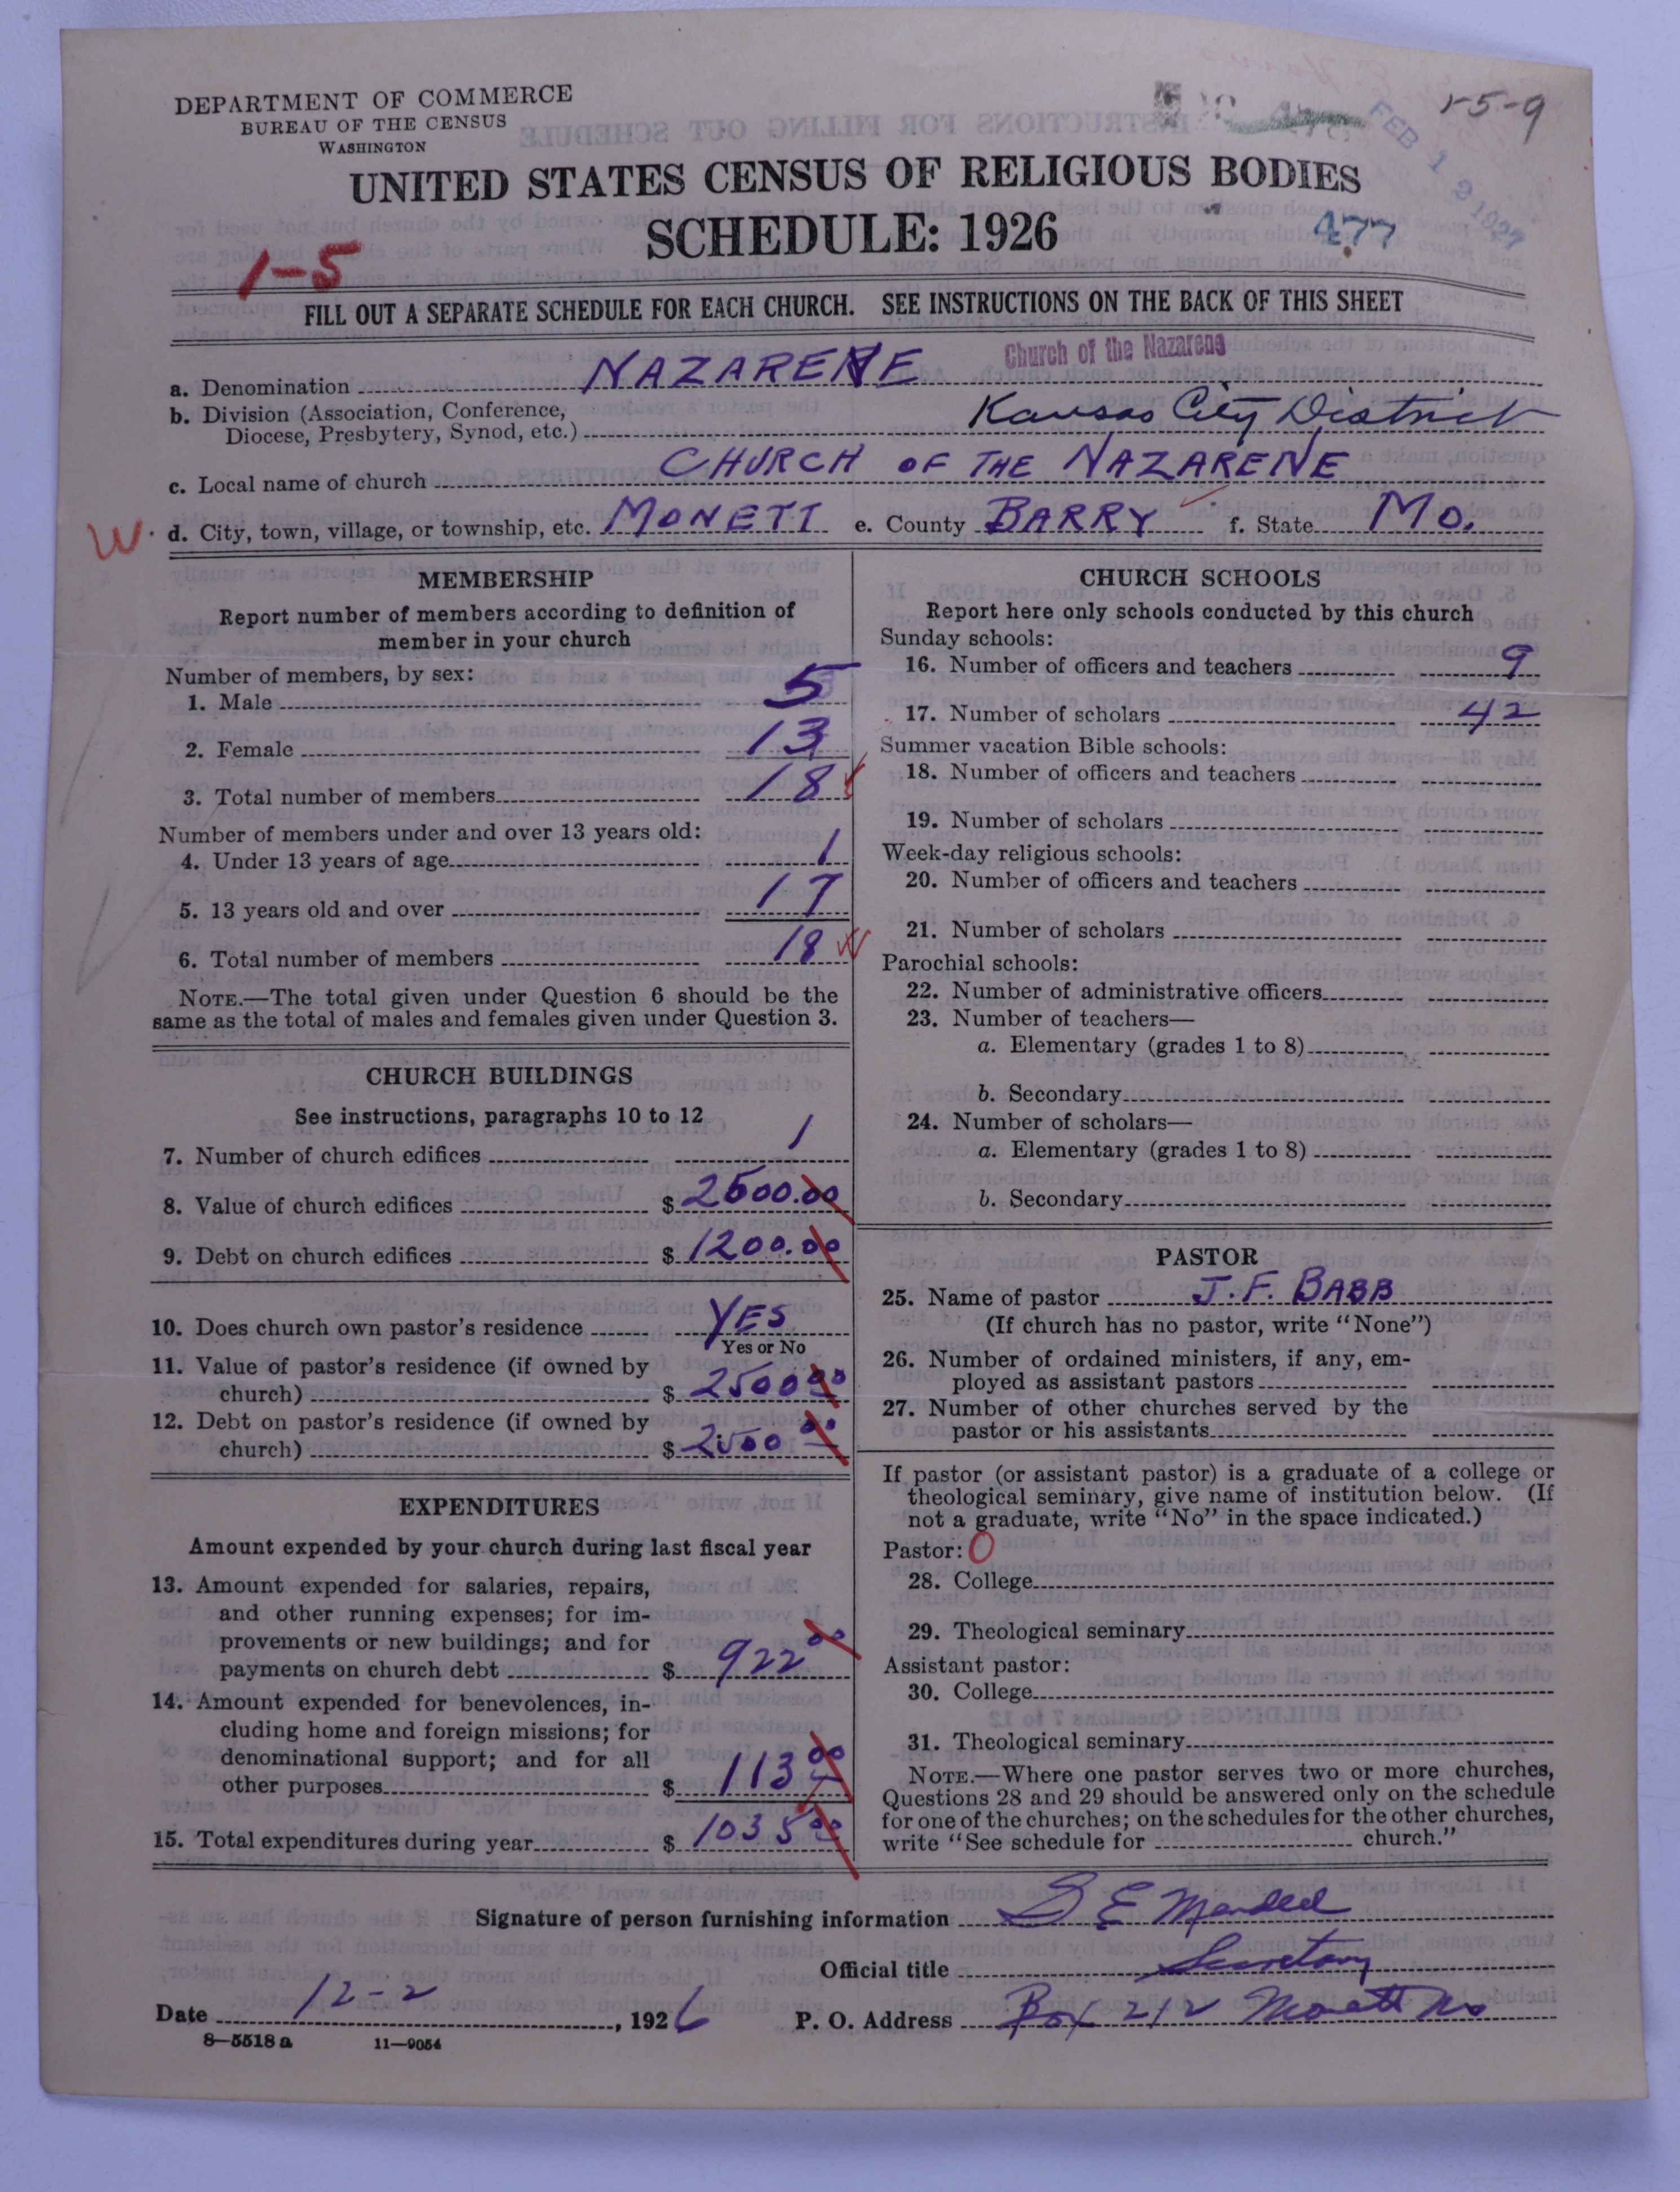 DEPARTMENT OF COMMERCE
BUREAU OF THE CENSUS
WASHINGTON
1-5-9
FEB 1 1927
UNITED STATES CENSUS OF RELIGIOUS BODIES
SCHEDULE: 1926
477
1-5
FILL OUT A SEPARATE SCHEDULE FOR EACH CHURCH. SEE INSTRUCTIONS ON THE BACK OF THIS SHEET
a. Denomination NAZARENE Church of the Nazarene
b. Division (Association, Conference,
Diocese, Presbytery, Synod, etc.) Kansas City District
c. Local name of church CHURCH OF THE NAZARENE
W d. City, town, village, or township, etc. MONETT e. County BARRY f. State MO.
MEMBERSHIP
Report number of members according to definition of
member in your church
Number of members, by sex:
1. Male 5
2. Female 13
3. Total number of members 18
Number of members under and over 13 years old:
4. Under 13 years of age 1
5. 13 years old and over 17
6. Total number of members 18
NOTE.—The total given under Question 6 should be the
same as the total of males and females given under Question 3.
CHURCH BUILDINGS
See instructions, paragraphs 10 to 12
7. Number of church edifices 1
8. Value of church edifices $ 2500.00
9. Debt on church edifices $ 1200.00
10. Does church own pastor's residence YES
Yes or No
11. Value of pastor's residence (if owned by
church) $ 2500 00
12. Debt on pastor's residence (if owned by
church) $ 2500 00
EXPENDITURES
Amount expended by your church during last fiscal year
13. Amount expended for salaries, repairs,
and other running expenses; for im-
provements or new buildings; and for
payments on church debt $ 922 00
14. Amount expended for benevolences, in-
cluding home and foreign missions; for
denominational support; and for all
other purposes $ 113 00
15. Total expenditures during year $ 1035 00
CHURCH SCHOOLS
Report here only schools conducted by this church
Sunday schools:
16. Number of officers and teachers 9
17. Number of scholars 42
Summer vacation Bible schools:
18. Number of officers and teachers
19. Number of scholars
Week-day religious schools:
20. Number of officers and teachers
21. Number of scholars
Parochial schools:
22. Number of administrative officers
23. Number of teachers—
a. Elementary (grades 1 to 8)
b. Secondary
24. Number of scholars—
a. Elementary (grades 1 to 8)
b. Secondary
PASTOR
25. Name of pastor J. F. BABB
(If church has no pastor, write "None")
26. Number of ordained ministers, if any, em-
ployed as assistant pastors
27. Number of other churches served by the
pastor or his assistants
If pastor (or assistant pastor) is a graduate of a college or
theological seminary, give name of institution below. (If
not a graduate, write "No" in the space indicated.)
Pastor: 0
28. College
29. Theological seminary
Assistant pastor:
30. College
31. Theological seminary
NOTE.—Where one pastor serves two or more churches,
Questions 28 and 29 should be answered only on the schedule
for one of the churches; on the schedules for the other churches,
write "See schedule for church."
Signature of person furnishing information S E
Official title Secretary
Date 12-2, 1926 P. O. Address Box 212 Monett Mo
8—5518 a 11—9054